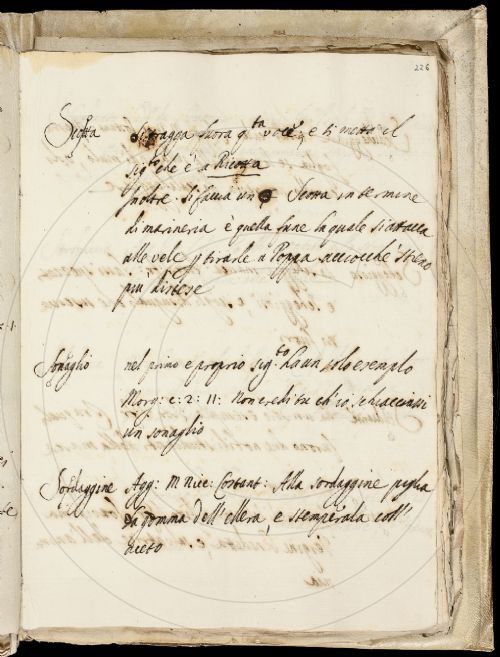 226
Scotta si tragga fuora q.ta voce, e si metta il
sig.to che è a Ricotta
Inoltre si faccia un Scotta in termine
di marineria è quella fune la quale si attacca
alle vele p tirarle a Poppa acciocchè stieno
più distese
Sonaglio nel primo e proprio sig.to ha un solo esempio
Morg: c: 2: 11: Non credi tu ch'io schiaccini
un sonaglio
Sordaggine Agg: M Nic: Costant: Alla sordaggine piglia
la gomma dell'ellera, e stemperala coll'
aceto